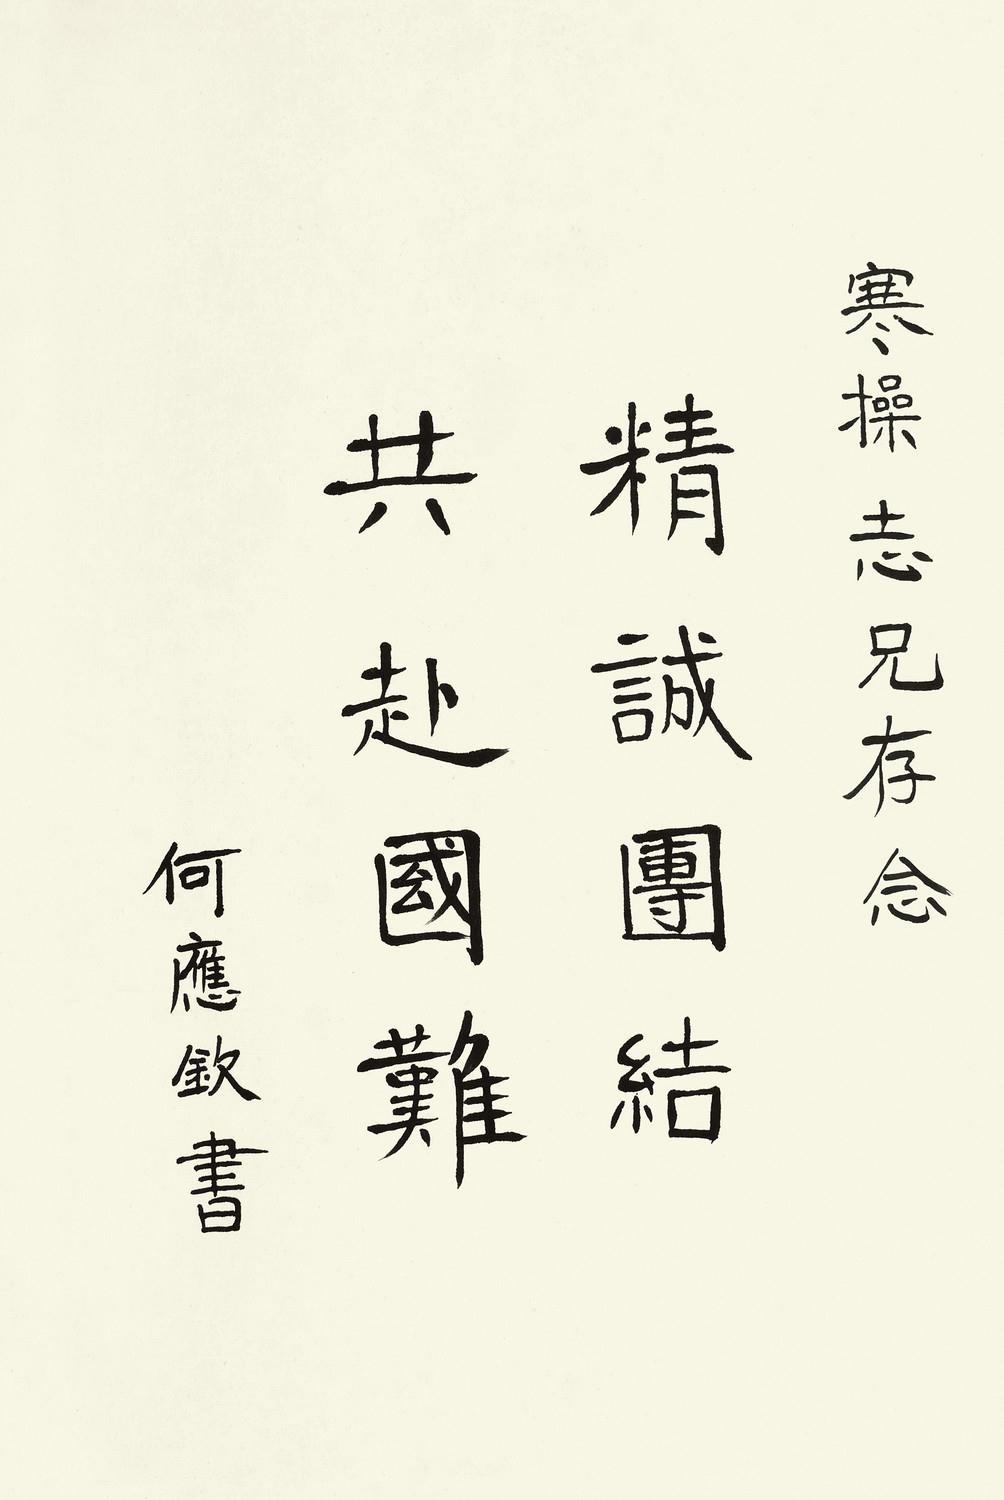 寒操志兄存念
精誠團結
共赴國難
何應欽書